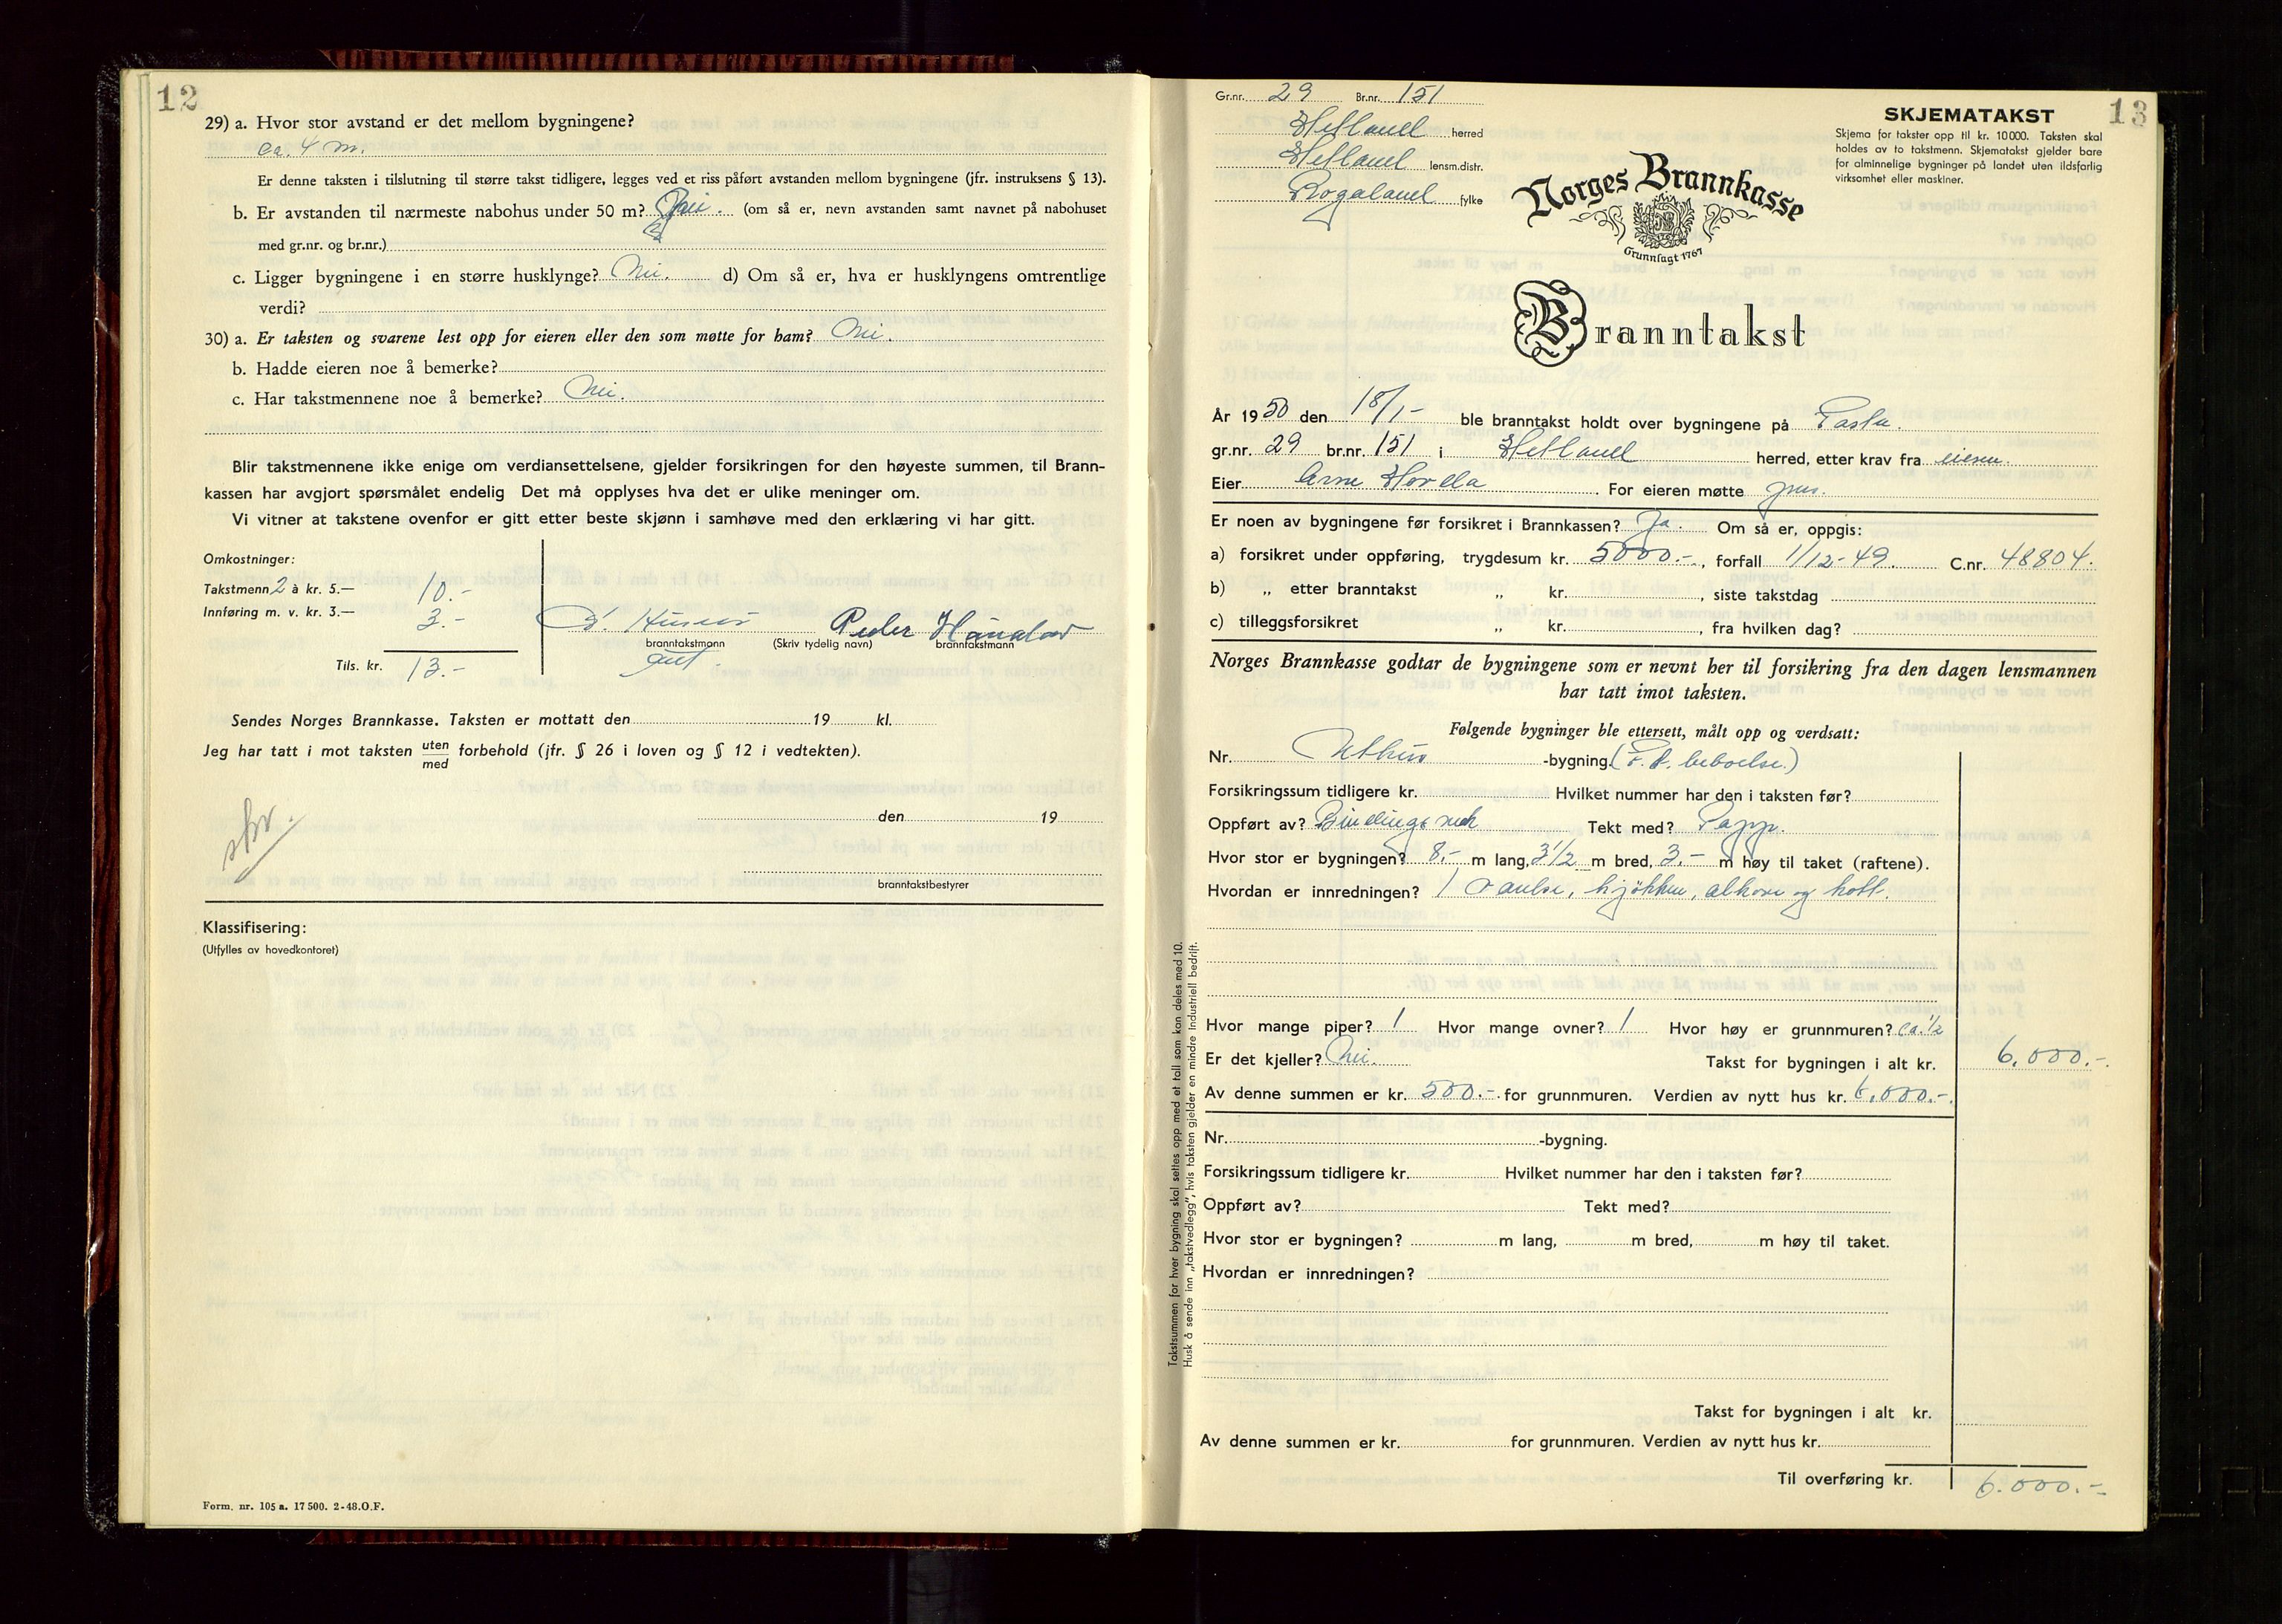 12
29) a. Hvor stor avstand er det mellom bygningene?
ca. 4 m.
Er denne taksten i tilslutning til større takst tidligere, legges ved et riss påført avstanden mellom bygningene (jfr. instruksens § 13).
b. Er avstanden til nærmeste nabohus under 50 m? Nei. (om så er, nevn avstanden samt navnet på nabohuset
med gr.nr. og br.nr.)
c. Ligger bygningene i en større husklynge? Nei. d) Om så er, hva er husklyngens omtrentlige
verdi?
30) a. Er taksten og svarene lest opp for eieren eller den som møtte for ham? Nei.
b. Hadde eieren noe å bemerke?
c. Har takstmennene noe å bemerke? Nei.
Blir takstmennene ikke enige om verdiansettelsene, gjelder forsikringen for den høyeste summen, til Brann-
kassen har avgjort spørsmålet endelig Det må opplyses hva det er ulike meninger om.
Vi vitner at takstene ovenfor er gitt etter beste skjønn i samhøve med den erklæring vi har gitt.
Omkostninger:
Takstmenn 2 à kr. 5.— 10.-
Innføring m. v. kr. 3.— 3.-
Tils. kr. 13.-
Peder
branntakstmann (Skriv tydelig navn) branntakstmann
Sendes Norges Brannkasse. Taksten er mottatt den 19 kl.
Jeg har tatt i mot taksten uten forbehold (jfr. § 26 i loven og § 12 i vedtekten).
med
den 19
branntakstbestyrer
Klassifisering:
(Utfylles av hovedkontoret)
Form. nr. 105 a. 17 500. 2-48.O.F.
13
Gr.nr. 29 Br.nr. 151
Hetland herred
Hetland lensm.distr.
Rogaland fylke
SKJEMATAKST
Skjema for takster opp til kr. 10000. Taksten skal
holdes av to takstmenn. Skjematakst gjelder bare
for alminnelige bygninger på landet uten ildsfarlig
virksomhet eller maskiner.
Norges Brannkasse
Grunnlagt 1767
Branntakst
År 1950 den 18/1- ble branntakst holdt over bygningene på
gr.nr. 29 br.nr. 151 i Hetland herred, etter krav fra eieren.
Eier Arne For eieren møtte
Er noen av bygningene før forsikret i Brannkassen? Ja. Om så er, oppgis:
a) forsikret under oppføring, trygdesum kr. 5000.-, forfall 1/12-49. C.nr. 48804.
b) „ etter branntakst „ kr. , siste takstdag
c) tilleggsforsikret „ kr. , fra hvilken dag?
Norges Brannkasse godtar de bygningene som er nevnt her til forsikring fra den dagen lensmannen
har tatt imot taksten.
Følgende bygninger ble ettersett, målt opp og verdsatt:
Nr. Uthus -bygning. (P.t. beboelse.)
Forsikringssum tidligere kr. Hvilket nummer har den i taksten før?
Oppført av? Bindingsverk Tekt med? Papp.
Hvor stor er bygningen? 8.- m lang, 3 1/2 m bred, 3.- m høy til taket (raftene).
Hvordan er innredningen? 1 kjøkken, alkove og kott.
Hvor mange piper? 1 Hvor mange ovner? 1 Hvor høy er grunnmuren? ca. 1/2
Er det kjeller? Nei. Takst for bygningen i alt kr. 6.000.-
Av denne summen er kr. 500.- for grunnmuren. Verdien av nytt hus kr. 6.000.-
Nr. -bygning.
Forsikringssum tidligere kr. Hvilket nummer har den i taksten før?
Oppført av? Tekt med?
Hvor stor er bygningen? m lang, m bred, m høy til taket.
Hvordan er innredningen?
Takst for bygningen i alt kr.
Av denne summen er kr. for grunnmuren. Verdien av nytt hus kr.
Til overføring kr. 6.000.-
Takstsummen for hver bygning skal settes opp med et tall som kan deles med 10.
Husk å sende inn „takstvedlegg", hvis taksten gjelder en mindre industriell bedrift.